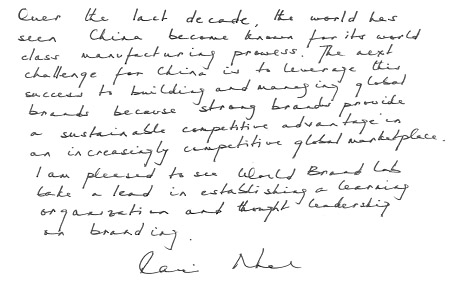 Over the last decade, the world has
seen China become known for its world
class manufacturing prowess. The next
challenge for China is to leverage this
success to building and managing global
brands because strong brands provide
a sustainable competitive advantage in
an increasingly competitive global marketplace.
I am pleased to see World Brand Lab
take a lead in establishing a learning
organization and thought leadership
on branding.